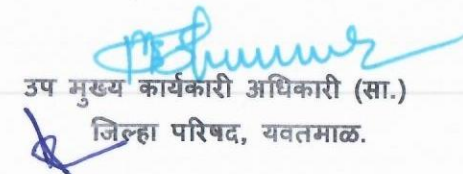 उप मुख्य कार्यकारी अधिकारी (सा.)
जिल्हा परिषद, यवतमाळ.